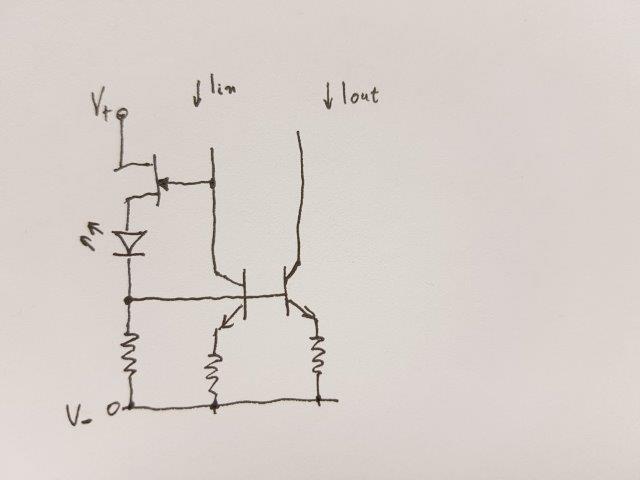 Iin
Iout
V+
V-